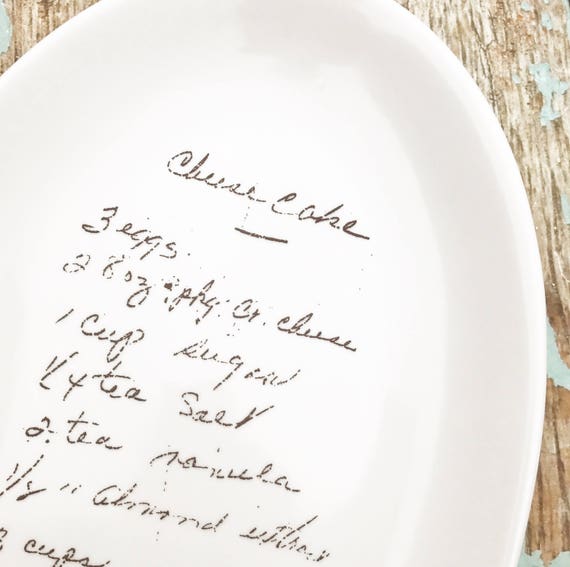 Cheese Cake
3 eggs.
2 8 oz. pkg. Cr. cheese
1 Cup sugar
1/4 tea Salt
2 tea vanilla
1/8 " Almond extract
cups